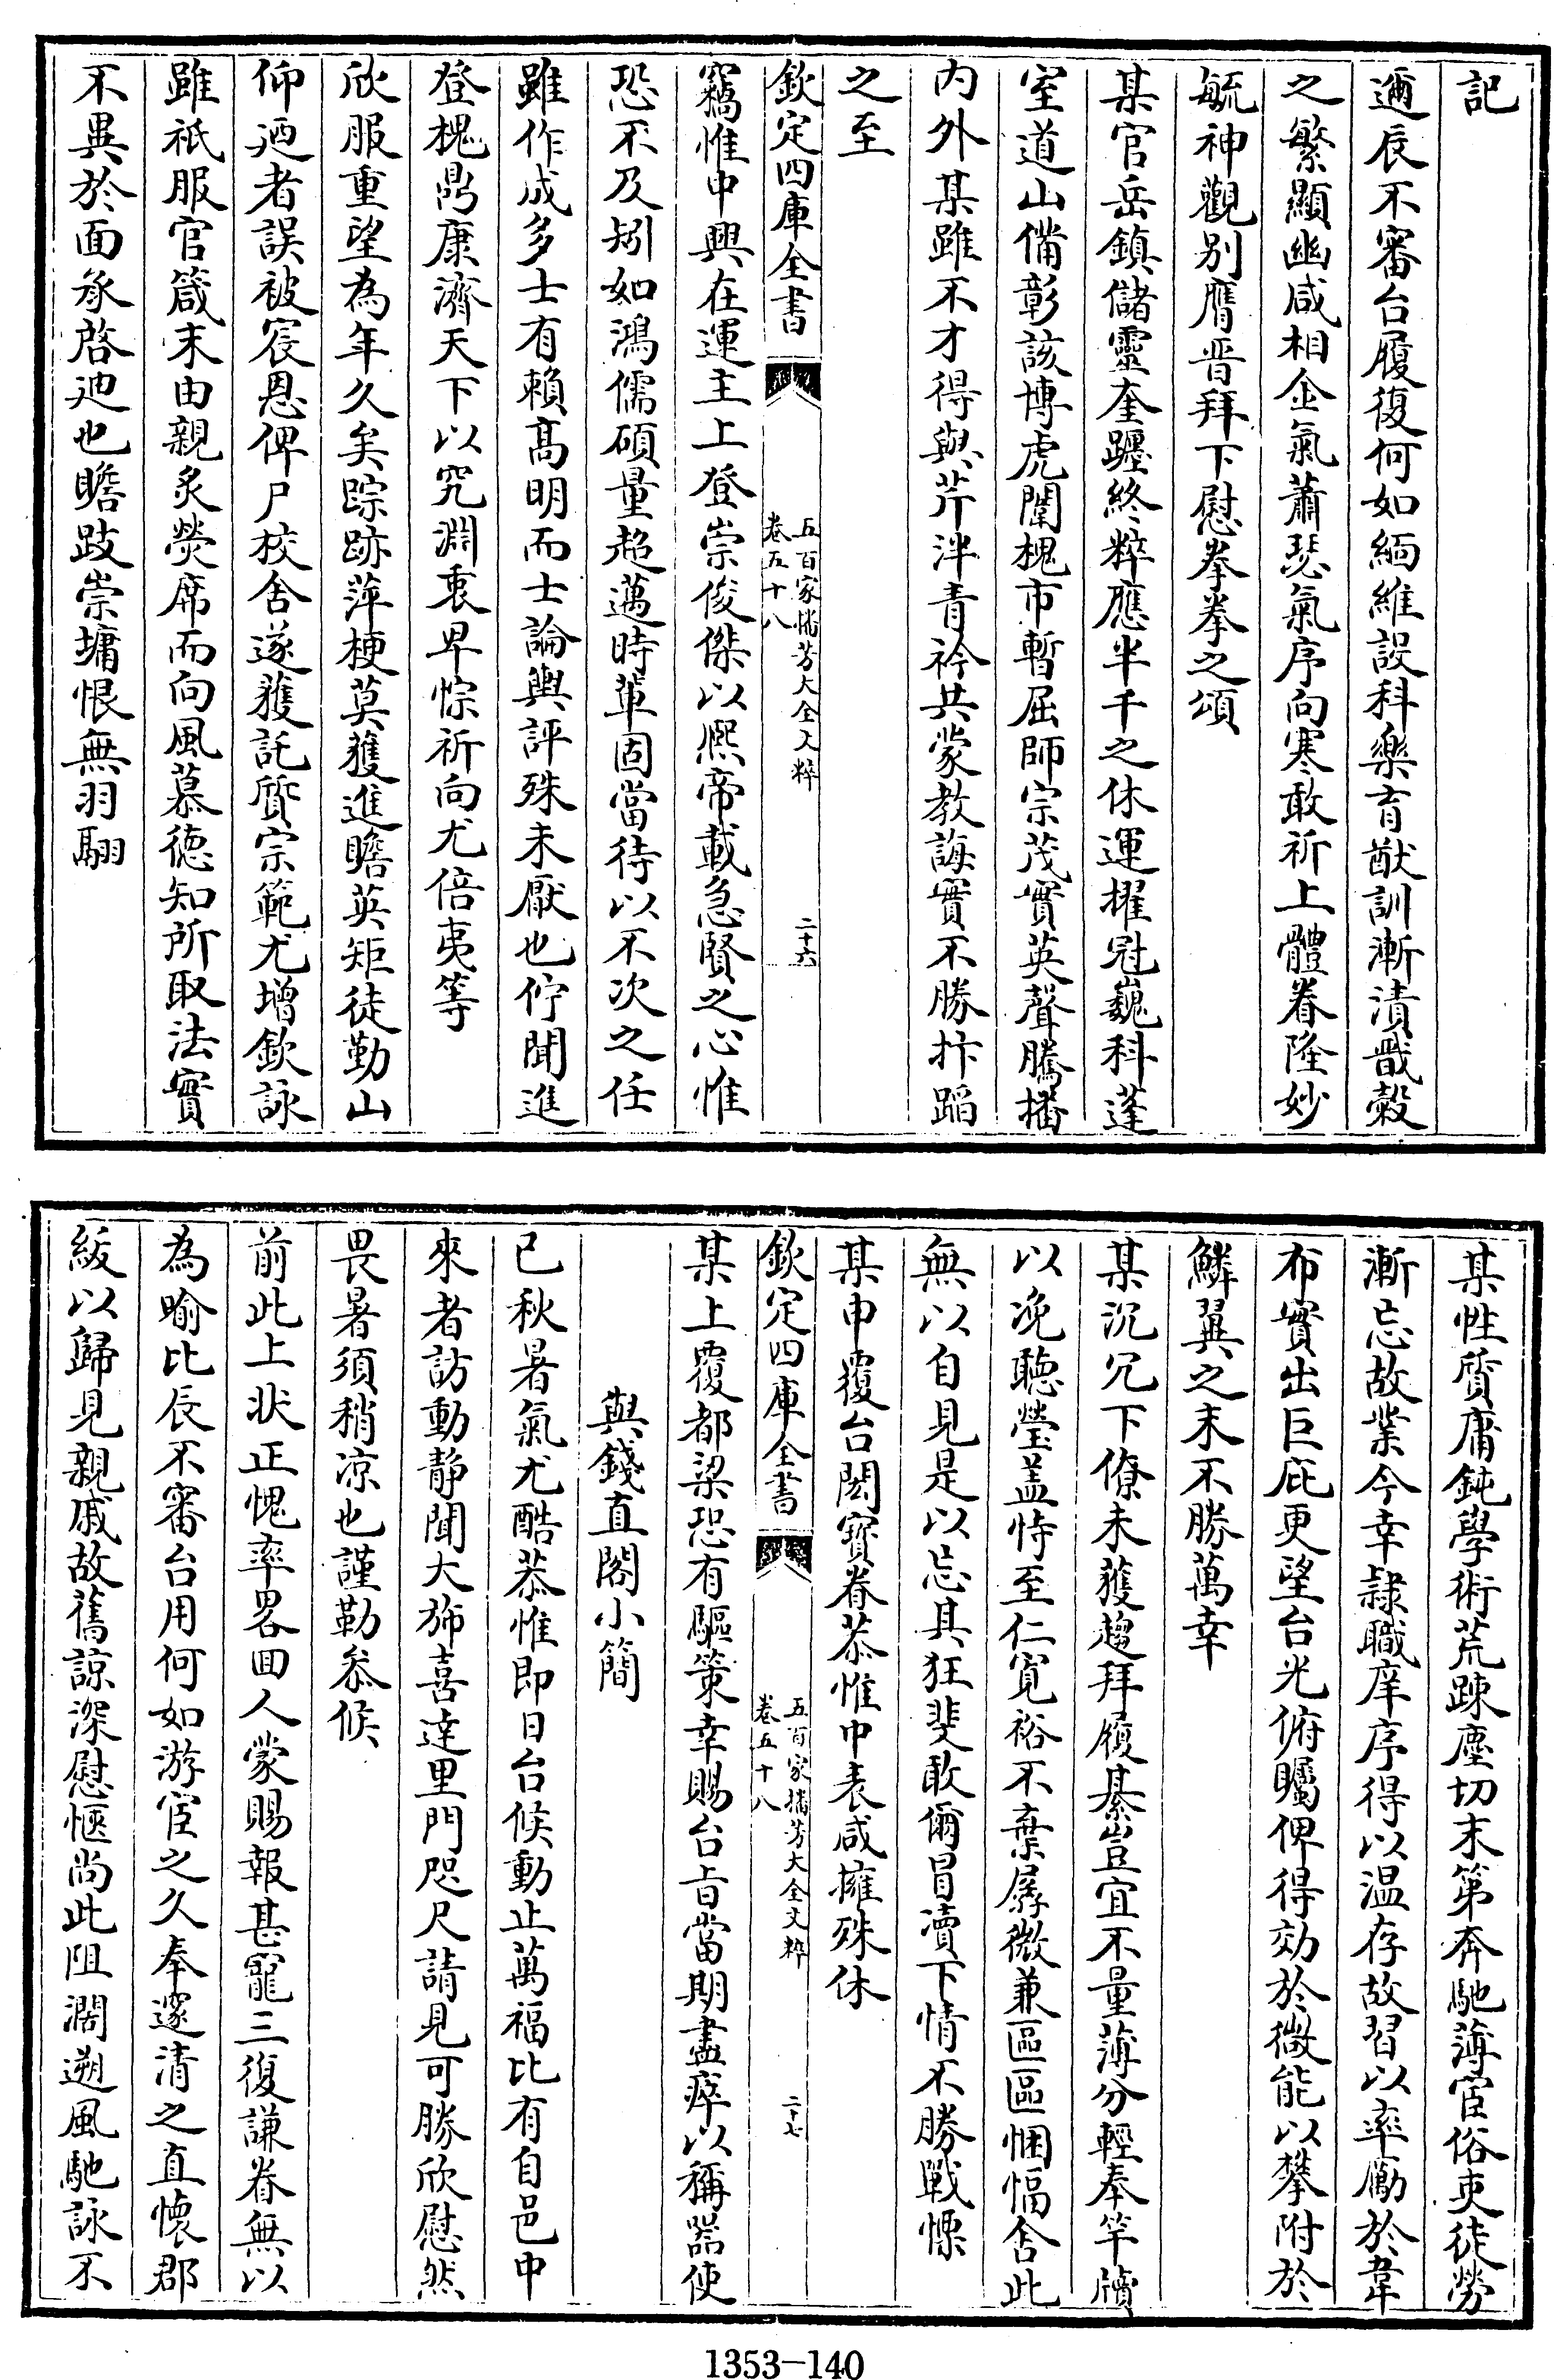 記
邇辰不審台履復何如緬維設科樂育猷訓漸漬戩穀
之繁顯幽咸相金氣蕭瑟氣序向寒敢祈上體眷隆妙
毓神觀别膺晋拜下慰拳拳之頌
某官岳鎮儲靈奎躔終粹應半千之休運擢冠巍科蓬
室道山備彰該博虎闈槐市暫屈師宗茂實英聲騰播
内外某雖不才得與芹泮青衿共蒙教誨實不勝抃蹈
之至
欽定四庫全書
五百家播芳大全文粹
卷五十八
二十六
竊惟中興在運主上登崇俊傑以熈帝載急賢之心惟
恐不及矧如鴻儒碩量超邁時輩固當待以不次之任
雖作成多士有賴髙明而士論輿評殊未厭也佇聞進
登槐鼎康濟天下以究淵衷卑悰祈向尤倍夷等
欣服重望為年久矣踪跡萍梗莫獲進瞻英矩徒勤山
仰廼者誤被宸恩俾尸校舍遂獲託質宗範尤增欽詠
雖祇服官箴末由親炙熒席而向風慕徳知所取法實
不異於面承啓廸也瞻跂崇墉恨無羽翮
某性質庸鈍學術荒踈塵切末第奔馳薄宦俗吏徒勞
漸忘故業今幸隸職庠序得以温存故習以率勵於韋
布實出巨庇更望台光俯矚俾得効於微能以攀附於
鱗翼之末不勝萬幸
某沉冗下僚未獲趨拜履綦豈宜不量薄分輕奉竿牘
以凂聽瑩盖恃至仁寛裕不棄孱微兼區區悃愊舍此
無以自見是以忘其狂斐敢爾冒瀆下情不勝戰慄
某申覆台閎寳眷恭惟中表咸擁殊休
欽定四庫全書
五百家播芳大全文粹
卷五十八
二十七
某上覆都梁恐有驅策幸賜台旨當期盡瘁以稱器使
與錢直閣小簡
已秋暑氣尤酷恭惟即日台候動止萬福比有自邑中
來者訪動静聞大斾喜達里門咫尺請見可勝欣慰然
畏暑須稍凉也謹勒叅候
前此上狀正愧率畧回人蒙賜報甚寵三復謙眷無以
為喻比辰不審台用何如游宦之久奉邃清之直懷郡
紱以歸見親戚故舊諒深慰愜尚此阻濶遡風馳詠不
1353—140